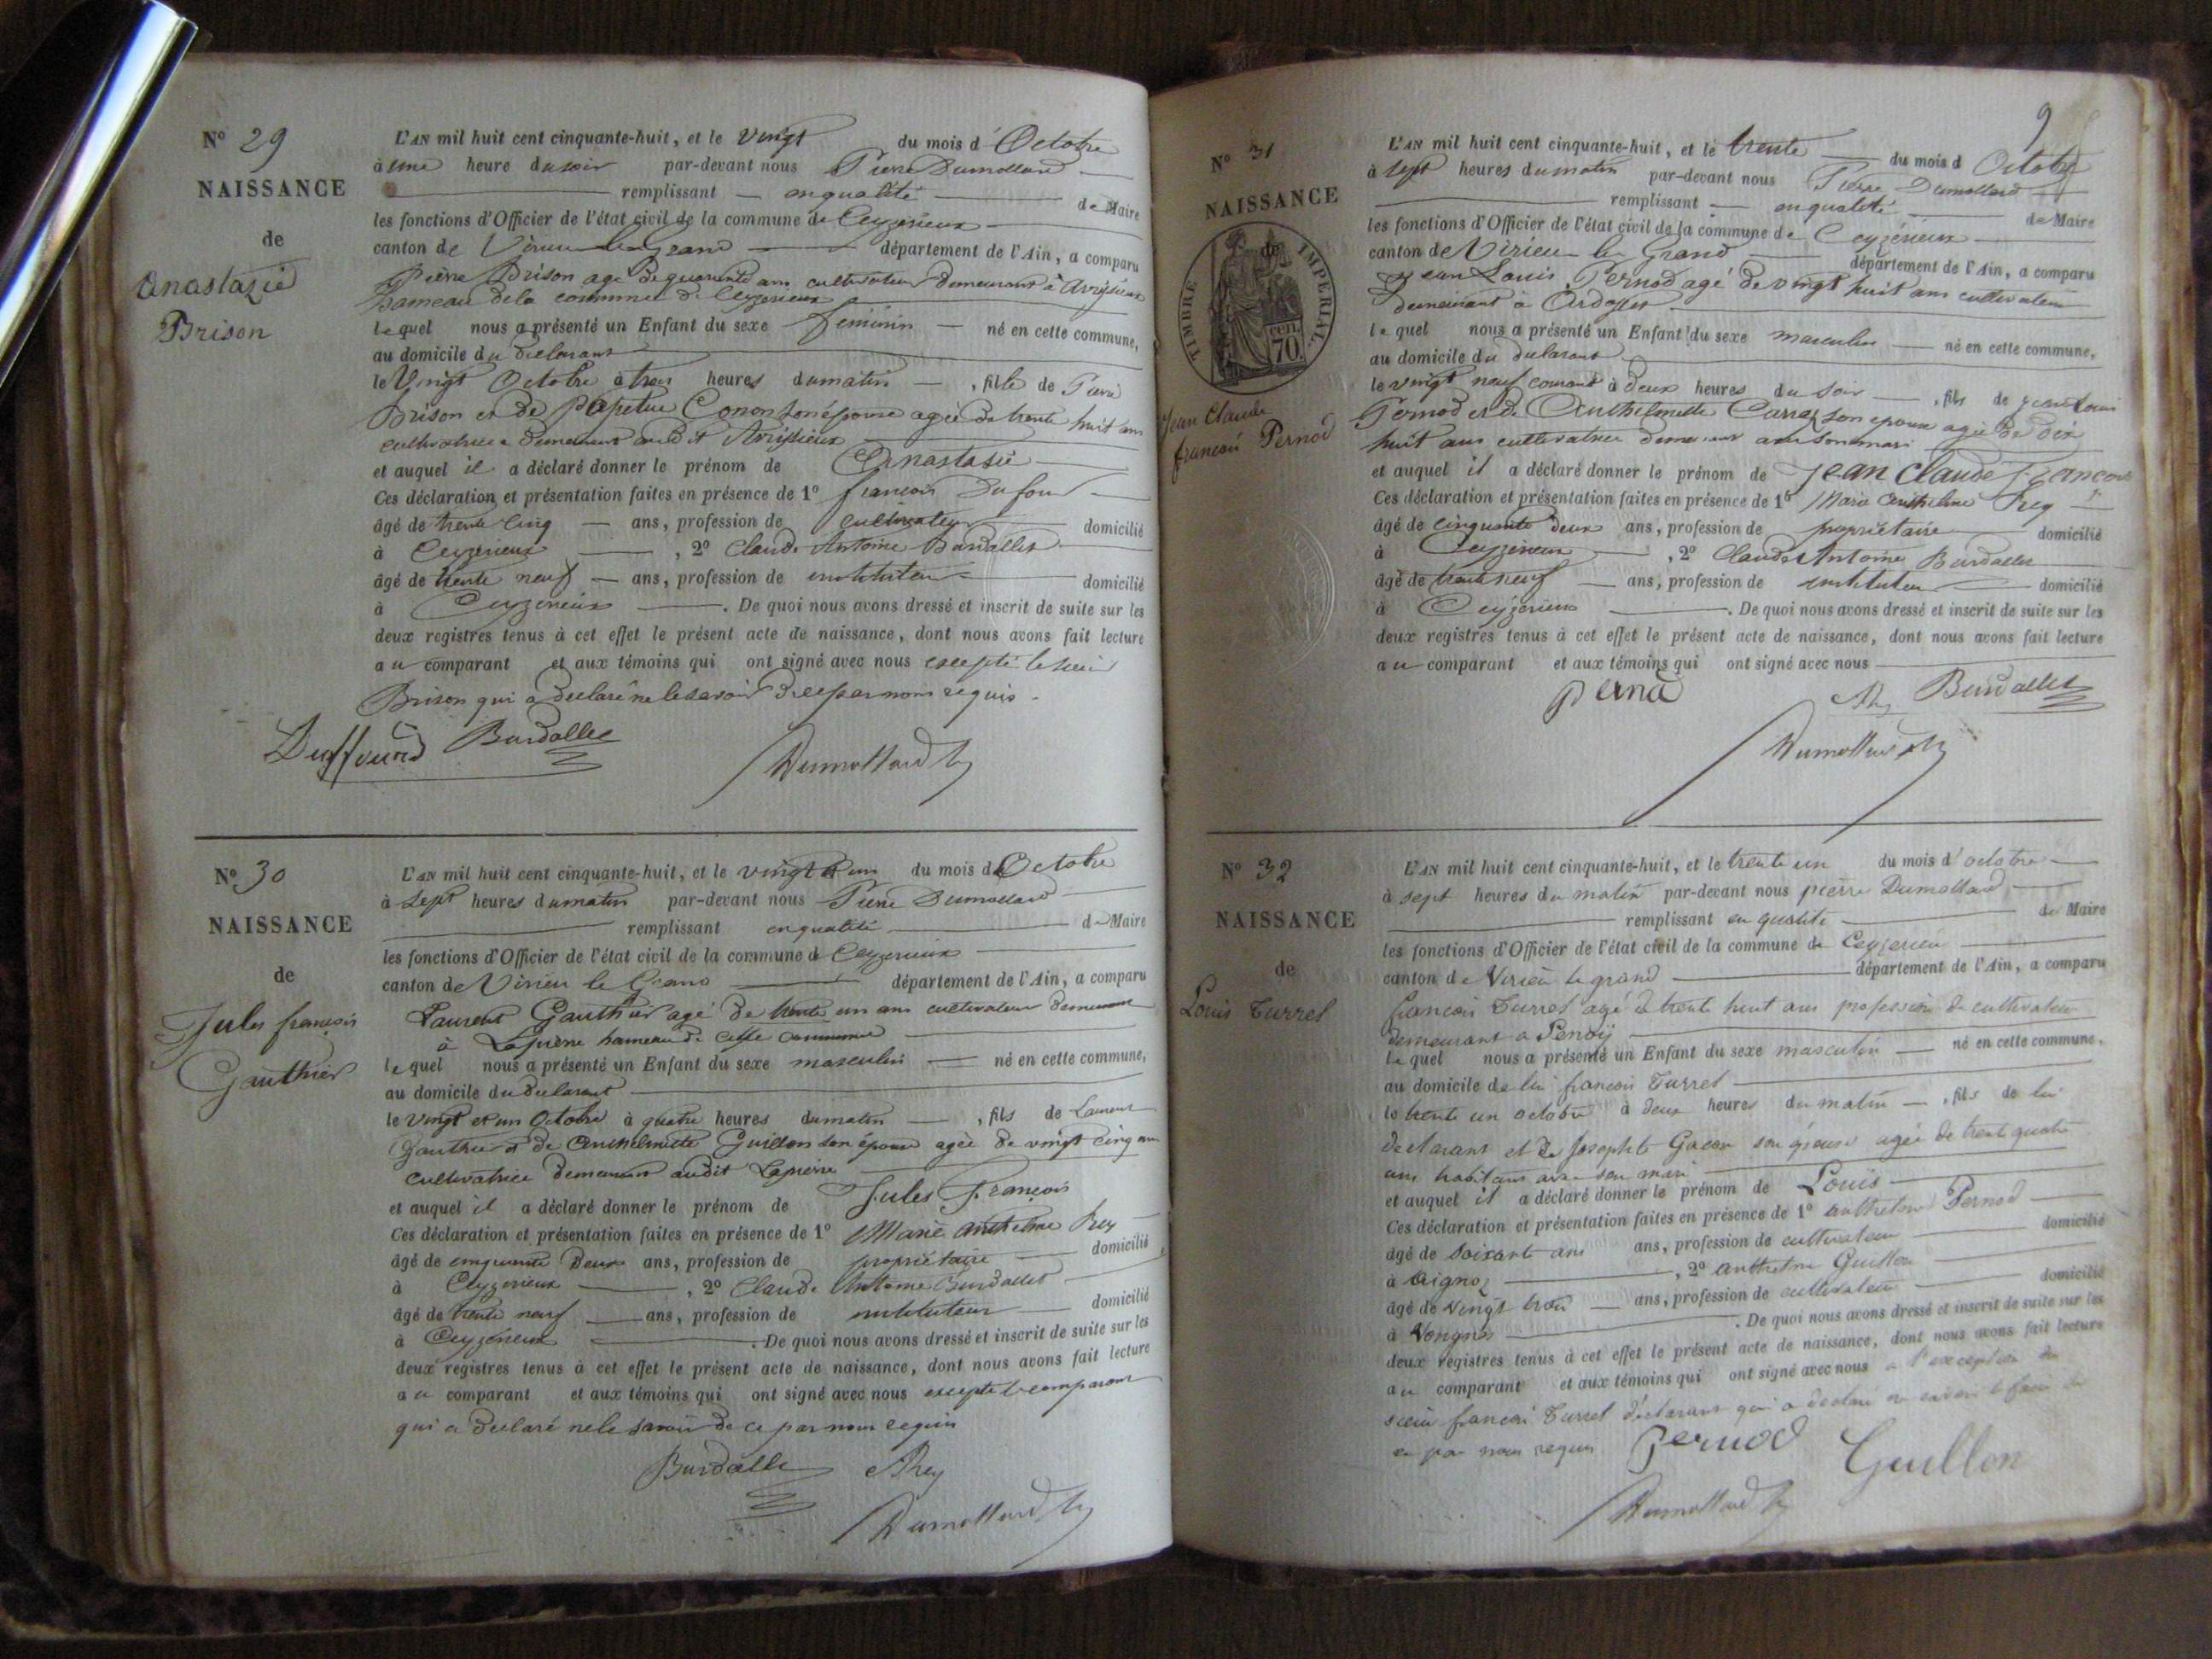 Nº 29
NAISSANCE
de
Anastazie
Brison
L'AN mil huit cent cinquante-huit, et le vingt du mois d'Octobre
à une heure du soir par-devant nous Pierre Dumollard
remplissant en qualité de Maire
les fonctions d'Officier de l'état civil de la commune de Ceyzerieux
canton de Virieu le grand département de l'Ain, a comparu
Pierre Brison agé de quarante ans cultivateur demeurant à
hameau de la commune de Ceyzerieux
lequel nous a présenté un Enfant du sexe féminin né en cette commune,
au domicile du déclarant
le Vingt Octobre à trois heures du matin , fille de Pierre
Brison et de son épouse agée de trente huit ans
cultivatrice demeurant audit
et auquel il a déclaré donner le prénom de Anastasie
Ces déclaration et présentation faites en présence de 1º françois Dufour
âgé de trente cinq ans, profession de cultivateur domicilié
à Ceyzerieux , 2º Claude Antoine Burdallet
âgé de trente neuf ans, profession de instituteur domicilié
à Ceyzerieux . De quoi nous avons dressé et inscrit de suite sur les
deux registres tenus à cet effet le présent acte de naissance, dont nous avons fait lecture
au comparant et aux témoins qui ont signé avec nous excepté le sieur
Brison qui a déclaré ne le savoir de ce par nous requis.
Duffourd Burdallet
Dumollard
Nº 30
NAISSANCE
de
Jules françois
Gauthier
L'AN mil huit cent cinquante-huit, et le vingt et un du mois d'Octobre
à sept heures du matin par-devant nous Pierre Dumollard
remplissant en qualité de Maire
les fonctions d'Officier de l'état civil de la commune de Ceyzerieux
canton de Virieu le Grand département de l'Ain, a comparu
Laurent Gauthier agé de trente un ans cultivateur demeurant
à hameau de cette commune
lequel nous a présenté un Enfant du sexe masculin né en cette commune,
au domicile du déclarant
le vingt et un Octobre à quatre heures du matin , fils de Laurent
Gauthier et de Anthelmette Guillon son épouse agée de vingt cinq ans
cultivatrice demeurant audit
et auquel il a déclaré donner le prénom de Jules François
Ces déclaration et présentation faites en présence de 1º Marie Anthelme Rey
âgé de cinquante deux ans, profession de propriétaire domicilié
à Ceyzerieux , 2º Claude Antoine Burdallet
âgé de trente neuf ans, profession de instituteur domicilié
à Ceyzérieux . De quoi nous avons dressé et inscrit de suite sur les
deux registres tenus à cet effet le présent acte de naissance, dont nous avons fait lecture
au comparant et aux témoins qui ont signé avec nous excepté le comparant
qui a déclaré ne le savoir de ce par nous requis
Burdallet Rey
Dumollard
9
Nº 31
NAISSANCE
de
TIMBRE IMPERIAL
70 cen.
Jean Claude
françois Pernod
L'AN mil huit cent cinquante-huit, et le trente du mois d Octobre
à sept heures du matin par-devant nous Pierre Dumollard
remplissant en qualité de Maire
les fonctions d'Officier de l'état civil de la commune de Ceyzérieux
canton de Virieu le Grand département de l'Ain, a comparu
Jean Louis Pernod agé de vingt huit ans cultivateur
demeurant à
lequel nous a présenté un Enfant du sexe masculin né en cette commune,
au domicile du déclarant
le vingt neuf courant à deux heures du soir , fils de Jean Louis
Pernod et de Anthelmette son épouse agée de dix
huit ans cultivatrice demeurant avec son mari
et auquel il a déclaré donner le prénom de Jean Claude François
Ces déclaration et présentation faites en présence de 1º Marie Anthelme Rey
âgé de cinquante deux ans, profession de propriétaire domicilié
à Ceyzérieux , 2º Claude Antoine Burdallet
âgé de trente neuf ans, profession de instituteur domicilié
à Ceyzérieux . De quoi nous avons dressé et inscrit de suite sur les
deux registres tenus à cet effet le présent acte de naissance, dont nous avons fait lecture
au comparant et aux témoins qui ont signé avec nous
Burdallet
Dumollard
Nº 32
NAISSANCE
de
Louis Turrel
L'AN mil huit cent cinquante-huit, et le trente un du mois d'octobre
à sept heures du matin par-devant nous pierre Dumollard
remplissant en qualité de Maire
les fonctions d'Officier de l'état civil de la commune de Ceyzerieu
canton de Virieu le grand département de l'Ain, a comparu
françois Turrel agé de trente huit ans profession de cultivateur
demeurant a
lequel nous a présenté un Enfant du sexe masculin né en cette commune,
au domicile de lui françois Turrel
le trente un octobre à deux heures du matin , fils de lui
déclarant et de Josephte son épouse agée de trente quatre
ans habitant avec son mari
et auquel il a déclaré donner le prénom de Louis
Ces déclaration et présentation faites en présence de 1º anthelme Pernod
âgé de soixante ans ans, profession de cultivateur domicilié
à aignoz , 2º anthelme Guillon
âgé de vingt trois ans, profession de cultivateur domicilié
à Vongnes . De quoi nous avons dressé et inscrit de suite sur les
deux registres tenus à cet effet le présent acte de naissance, dont nous avons fait lecture
au comparant et aux témoins qui ont signé avec nous a l'exception du
sieur françois Turrel déclarant qui a déclaré ne savoir le faire de
ce par nous requis Pernod Guillon
Dumollard